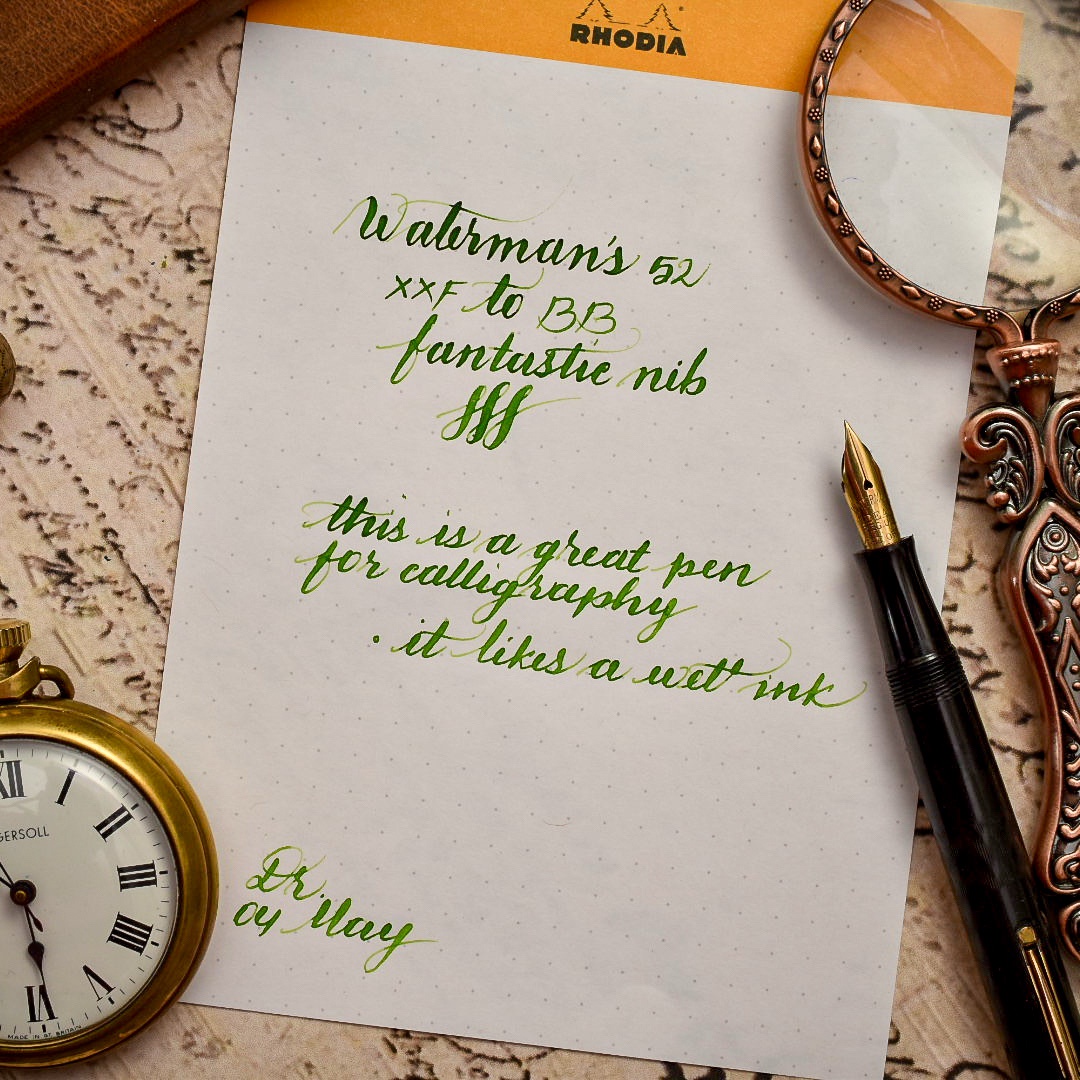 RHODIA
Waterman's 52
XXF to BB
fantastic nib
fff
this is a great pen
for calligraphy
· it likes a wet ink
Dr.
04 May
XII
I
II
III
IIII
V
VI
GERSOLL
MADE IN GT. BRITAIN